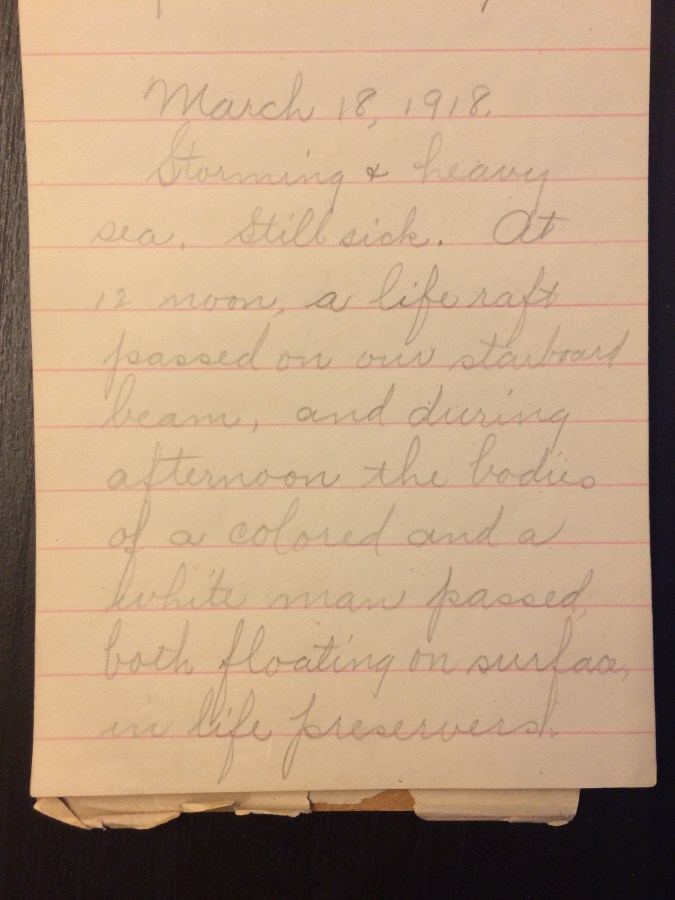 March 18, 1918.
Storming & heavy
sea. Still sick. At
12 noon, a life raft
passed on our starboard
beam, and during
afternoon the bodies
of a colored and a
white man passed,
both floating on surface,
in life preservers.